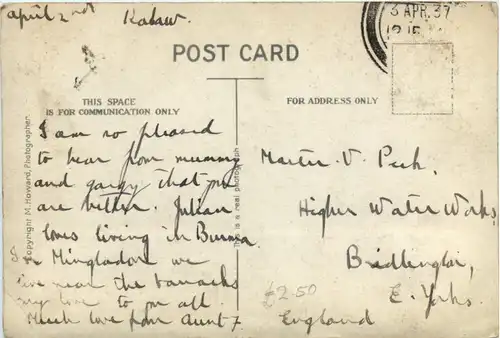 april 2nd Kalaw.
3 APR. 37
12 15
POST CARD
THIS SPACE
IS FOR COMMUNICATION ONLY
FOR ADDRESS ONLY
I am so pleased
to hear from mummy
and gargy that you
are better. Julian
loves living in Burma.
Mingladon we
live near the barracks
my love to you all
Much love from Aunt
Copyright M. Howard, Photographer.
is a real photograph
Master V. Peek,
Higher Water Works,
Bridlington,
E. Yorks.
England
£2.50